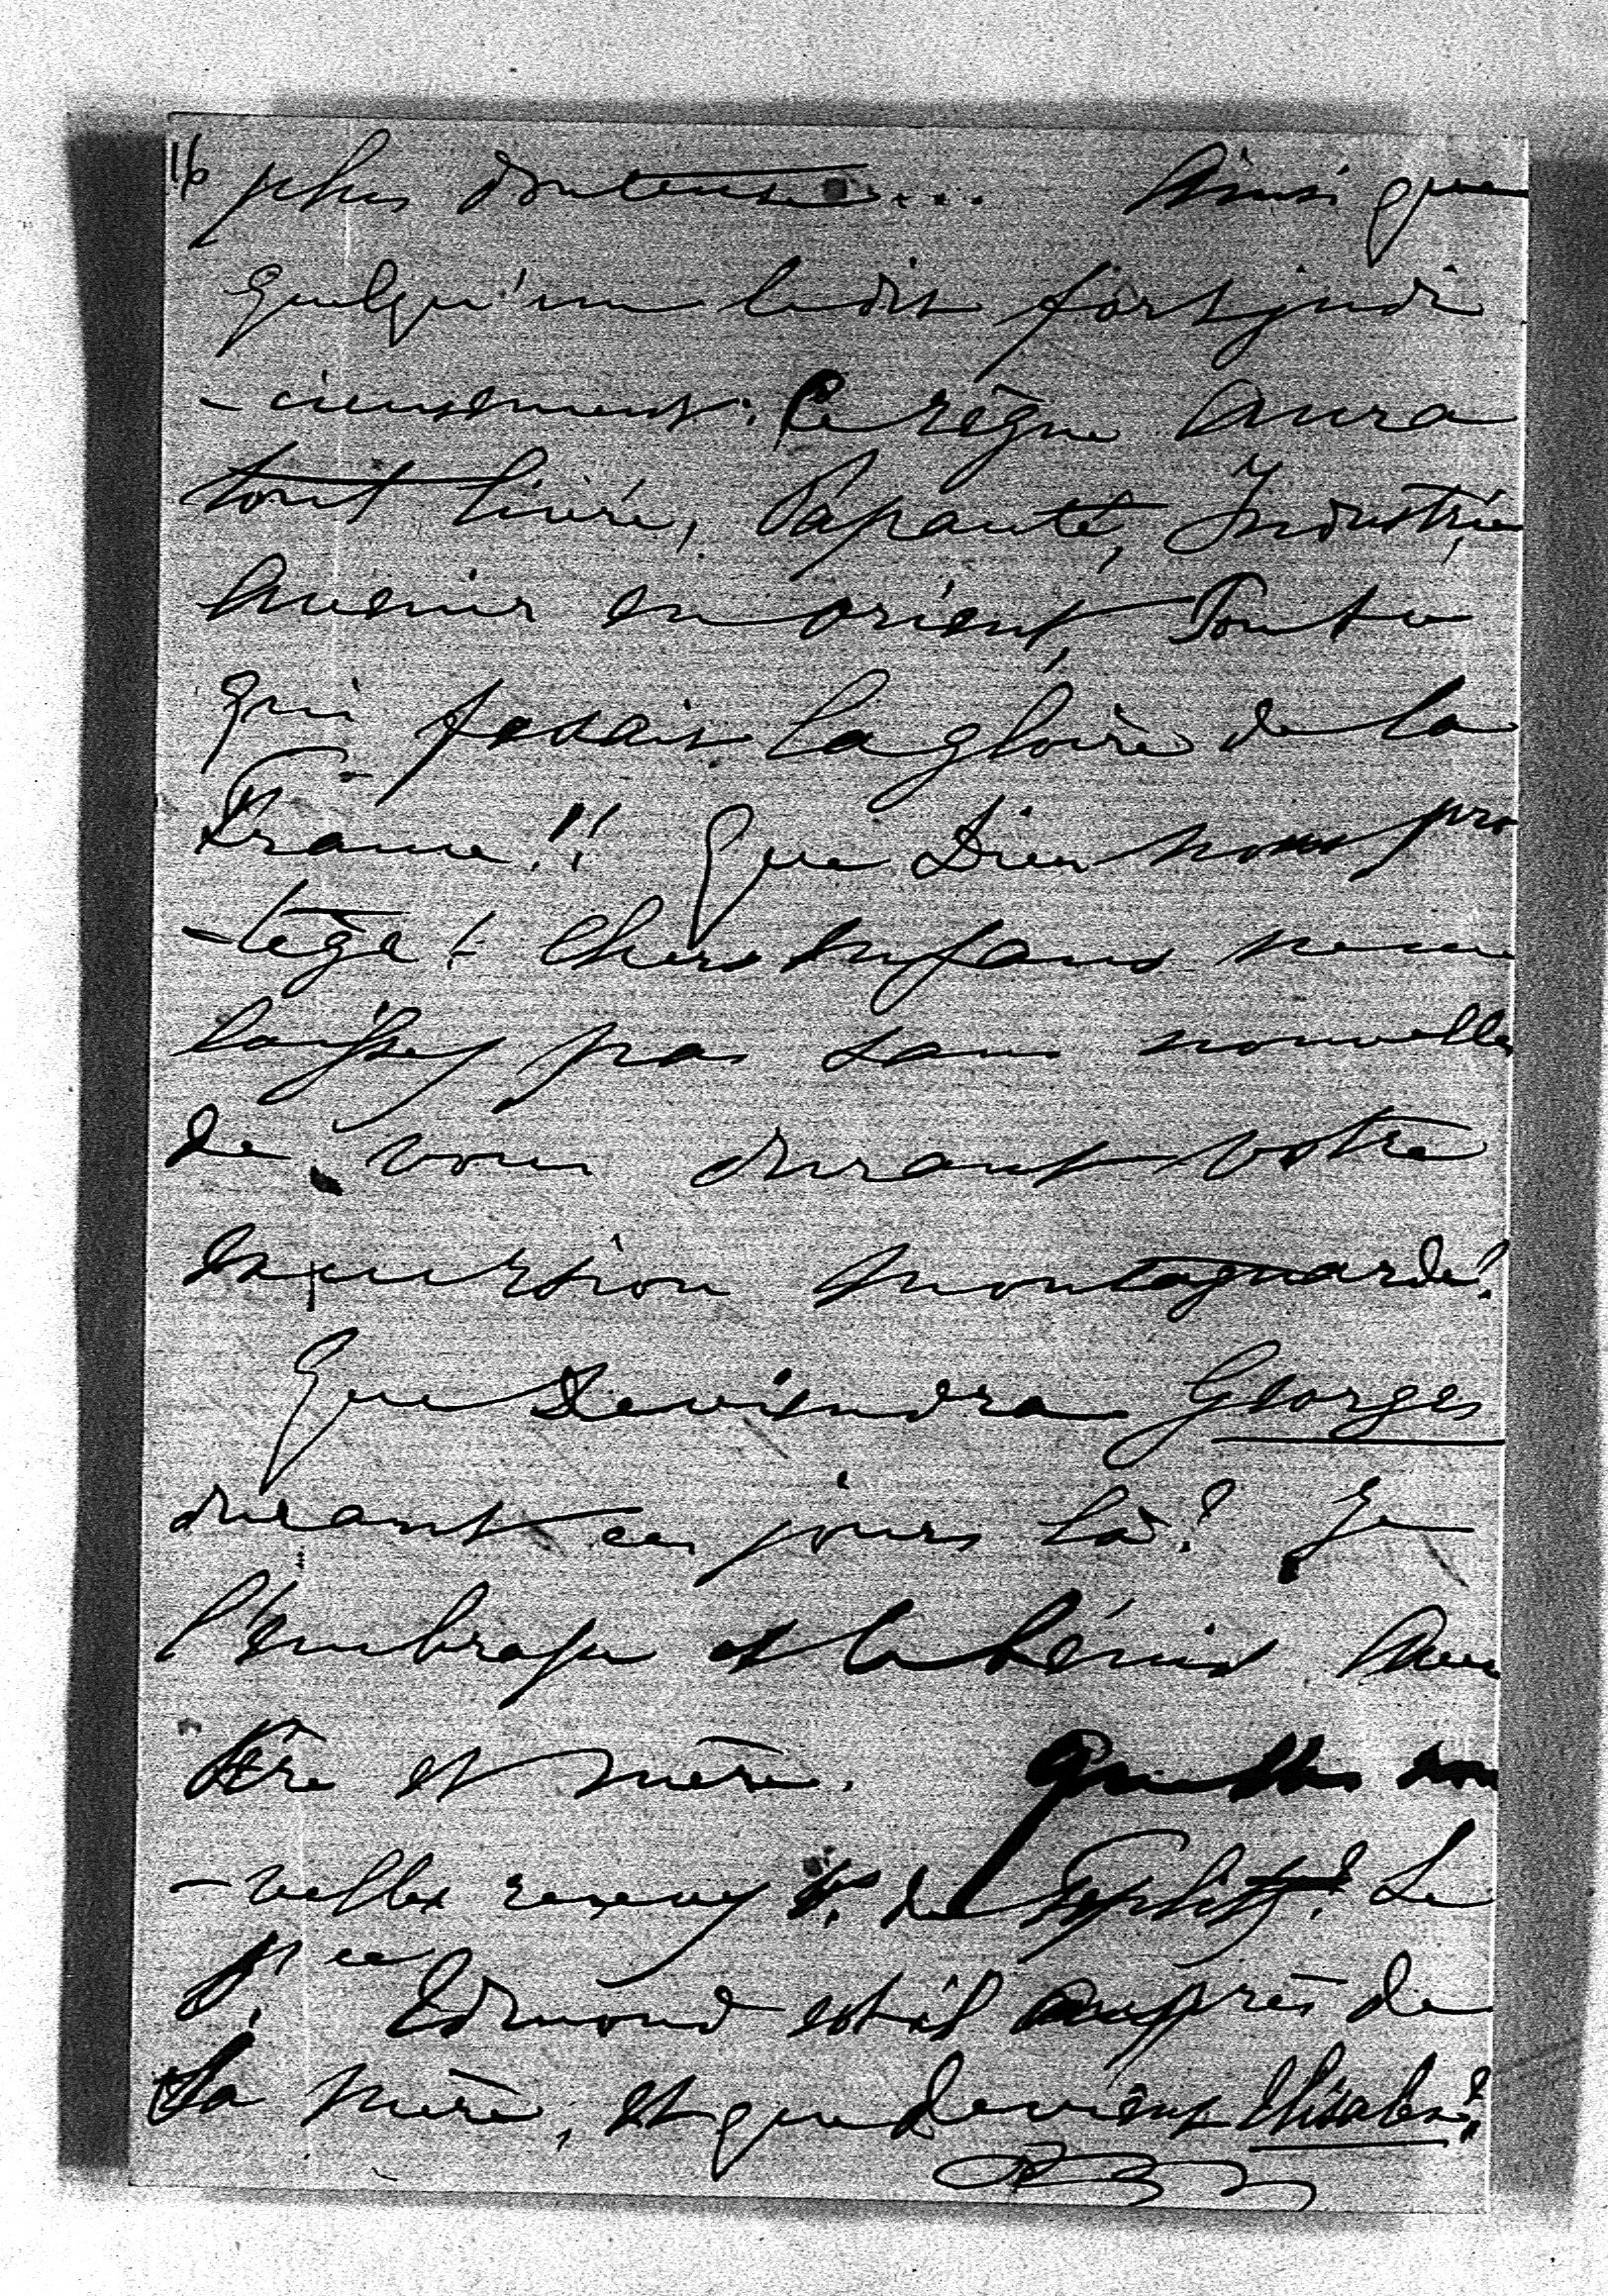 16 plus douteuse... Ainsi que
quelqu'un le dit fort judi
-cieusement: Ce règne aura
tout livré, Papauté, Industrie,
Avenir en orient, Tout ce
qui fesait la gloire de la
France!! Que Dieu nous pro
-tège! Chers enfans ne me
laissez pas sans nouvelles
de vous durant votre
excursion montagnarde!
Que deviendra Georges
durant ces jours là? Je
l'embrasse et le bénis avec
Père et mère. Quelles nou
-velles recevez V. de Toeplitz? Le
Pce Edmond est-il auprès de
Sa mère, et que devient Elisabeth?